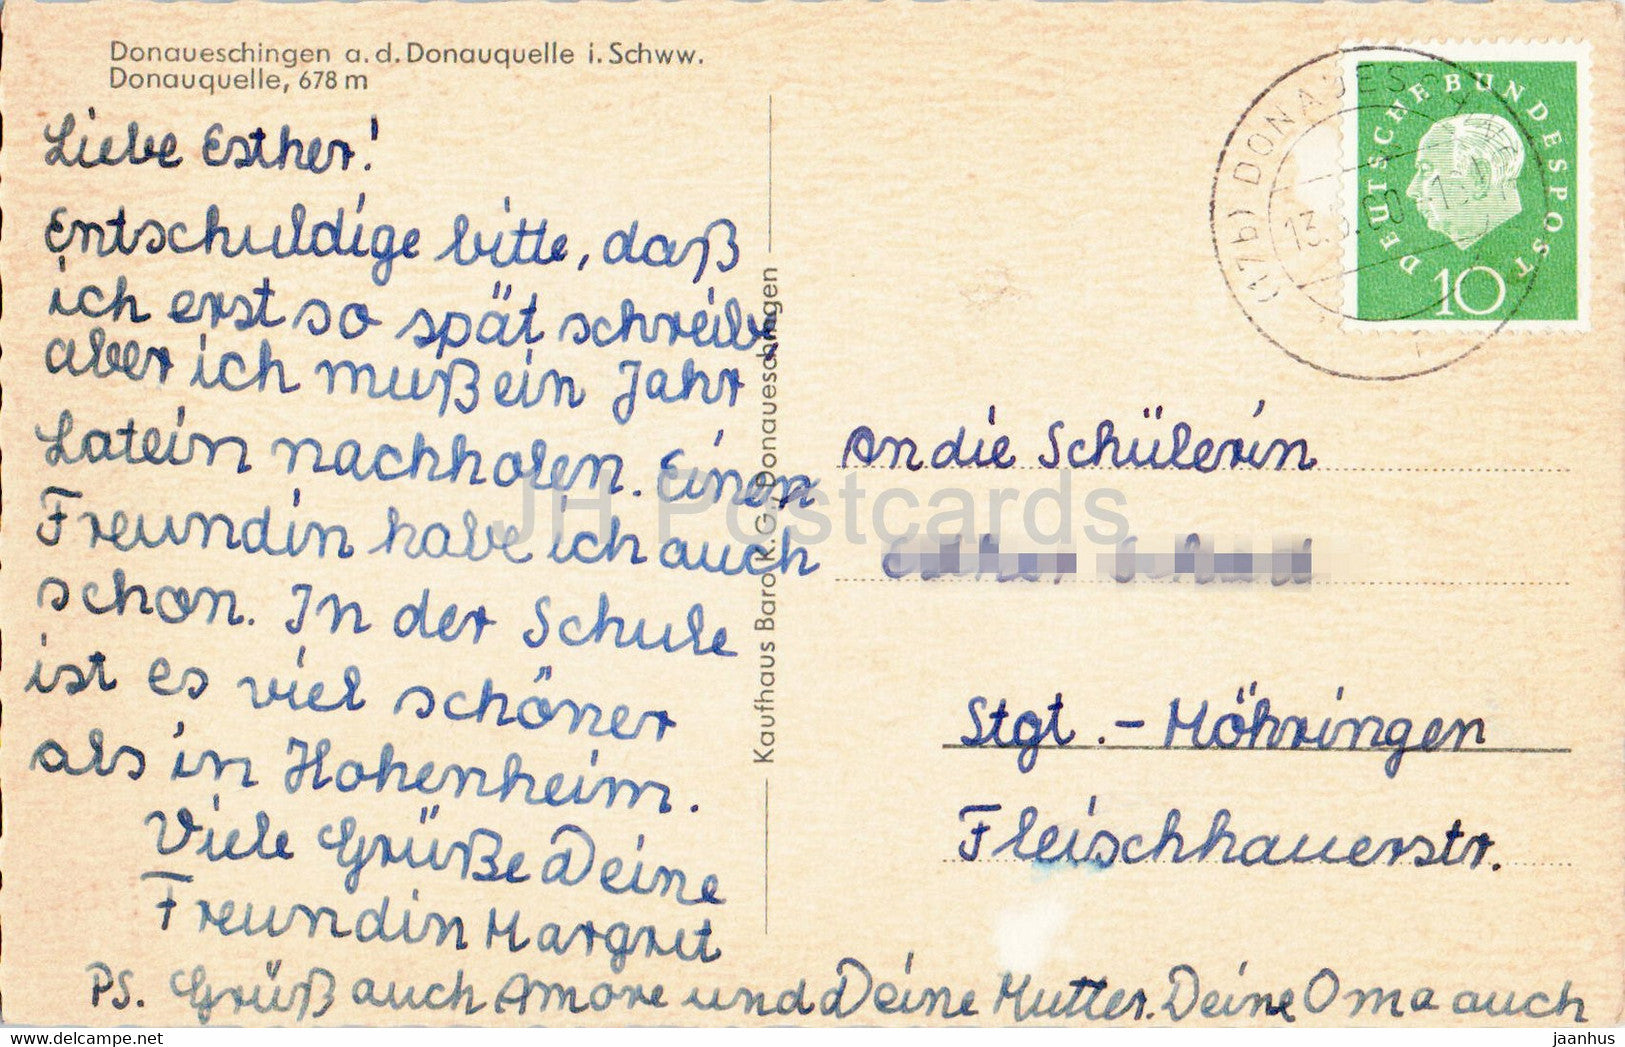 Donaueschingen a. d. Donauquelle i. Schww.
Donauquelle, 678 m
Liebe Esther!
Entschuldige bitte, daß
ich erst so spät schreibe,
aber ich muß ein Jahr
Latein nachholen. Einen
Freundin habe ich auch
schon. In der Schule
ist es viel schöner
als in Hohenheim.
Viele Grüße Deine
Freundin Margret
PS. Grüß auch Amore und Deine Mutter. Deine Oma auch
Kaufhaus Baro K. G., Donaueschingen
DEUTSCHE BUNDESPOST
10
(17b) DONAUESCHINGEN
An die Schülerin
Stgt. - Möhringen
Fleischhauerstr.
JH Postcards
jaanhus
www.delcampe.net